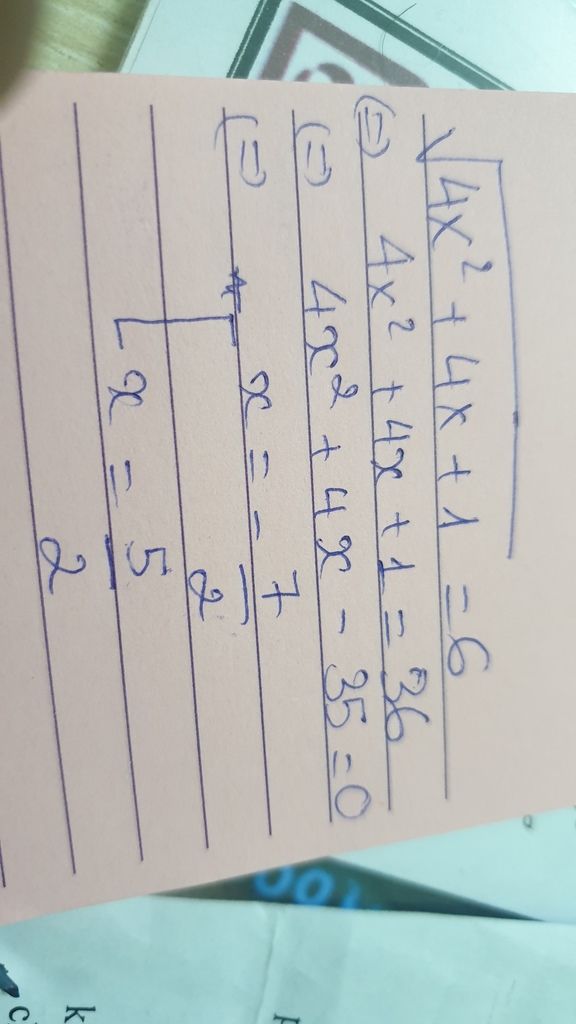 √(4x² + 4x + 1) = 6
(=) 4x² + 4x + 1 = 36
(=) 4x² + 4x - 35 = 0
(=) [ x = - 7/2
[ x = 5/2
00
k
c